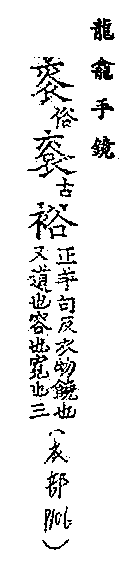 龍龕手鏡
俗
古
裕
正羊句反衣物饒也
又道也容也寬也三
(衣部P106)